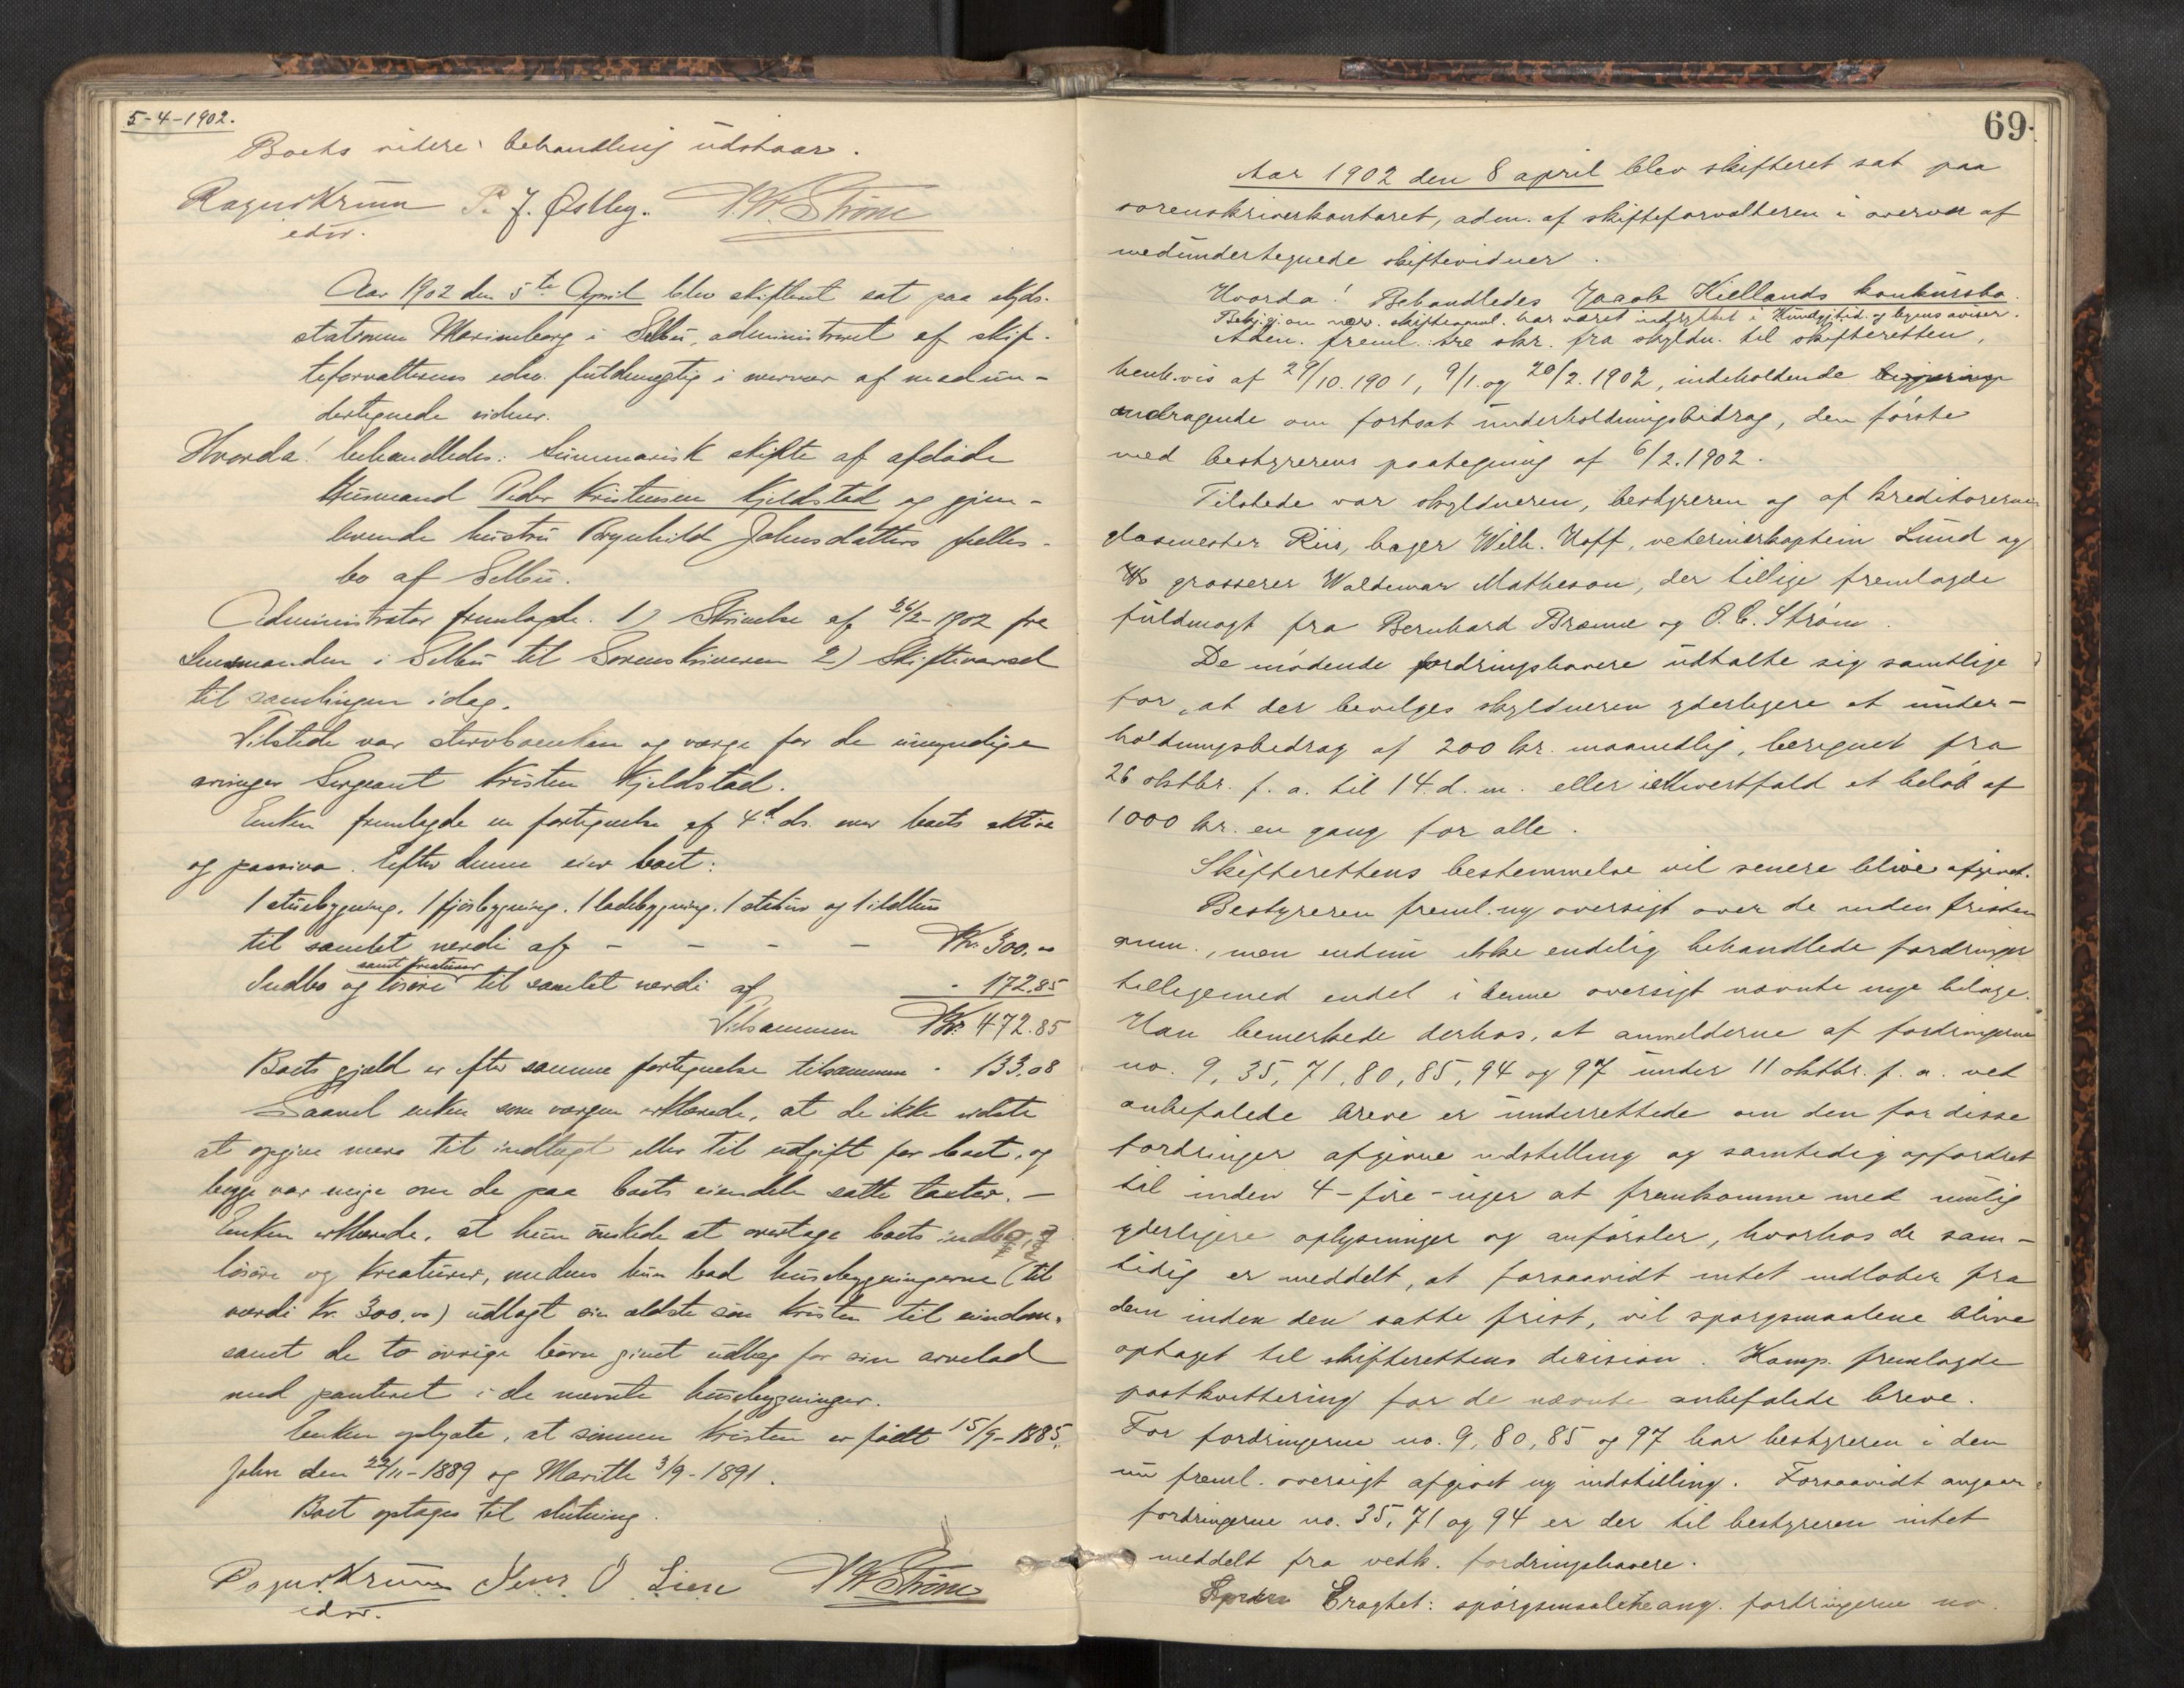 5-4-1902.
Boets videre behandling udstaar.
Ragnv Krüm P. J. Østby. W. Strøm
edsv.
Aar 1902 den 5te April blev skifteret sat paa skyds-
stationen Marienborg i Selbü, administreret af skif-
teforvalterens edsv. fuldmægtig i overvær af medün-
dertegnede vidner.
Hvorda! behandledes: Sümmarisk skifte af afdøde
Hüsmand Peder Kristensen Kjeldstad og gjen-
levende hüstrü Brynhild Johnsdatters fælles-
bo af Selbü.
Administrator fremlagde. 1) Skrivelse af 26/2-1902 fra
Lensmanden i Selbü til Sorenskriveren 2) Skiftevarsel
til samlingen idag.
Tilstede var stervboenken og værge for de ümyndige
arvinger Sergeant Kristen Kjeldstad.
Enken fremlagde en fortegnelse af 4d ds. over boets aktiva
og passiva. Efter denne eier boet:
1 stüebygning. 1 fjøsbygning. 1 ladebygning. 1 stabür og 1 ildhus
til samlet værdi af - - - - Kr. 300.00
samt kreaturer
Indbo og løsøre til samlet værdi af - 172.85
Tilsammen Kr. 472.85
Boets gjæld er efter samme fortegnelse tilsammen - 133.08
Saavel enken som værgen erklærede, at de ikke vidste
at opgive mere til indtægt eller til udgift for boet, og
begge var enige om de paa boets eiendele satte taxter. -
Enken erklærede, at hün ønskede at overtage boets indbo,
løsøre og kreatürer, medens hün bad hüsebygningerne (til
værdi Kr. 300.00) udlagt sin ældste søn Kristen til eiendom,
samt de to øvrige børn givet udlæg for sin arvelod
med panteret i de nævnte hüsebygninger.
Enken oplyste, at sønnen Kristen er født 15/9-1885,
John den 22/11-1889 og Marith 3/9-1891.
Boet optages til slutning.
Ragnv Krüm Jens O Lien W. Strøm
edsv.
69.
Aar 1902 den 8 april blev skifteret sat paa
sorenskriverkontoret, adm. af skifteforvalteren i overvær af
medündertegnede skiftevidner.
Hvorda! Behandledes Jacob Kiellands konkürsbo.
Bekjgj. om nærv. skiftesaml. har været indrykket i Kündgj.tid. og byens aviser.
Adm. freml. tre skr. fra skyldn. til skifteretten,
henh.vis af 29/10.1901, 9/1. og 20/2.1902, indeholdende
andragende om fortsat ünderholdningsbidrag, den første
med bestyrerens paategning af 6/2.1902.
Tilstede var skyldneren, bestyreren og af kreditorerne
glasmester Riis, bager Wilh. Hoff, veterinærkaptein Lünd og
grosserer Waldemar Matheson, der tillige fremlagde
füldmagt fra Bernhard Brænne og O. C. Strøm.
De mødende fordringshavere üdtalte sig samtlige
for, at der bevilges skyldneren yderligere et ünder-
holdningsbidrag af 200 kr. maanedlig, beregnet fra
26 oktbr. f. a. til 14. d. m. eller iethvertfald et beløb af
1000 kr. en gang for alle.
Skifterettens bestemmelse vil senere blive afgivet.
Bestyreren freml. ny oversigt over de inden fristen
anm., men endnü ikke endelig behandlede fordringer
tilligemed endel i denne oversigt nævnte nye bilage.
Han bemerkede derhos, at anmelderne af fordringerne
no. 9, 35, 71, 80, 85, 94 og 97 ünder 11 oktbr. f. a. ved
anbefalede breve er ünderrettede om den for disse
fordringer afgivne indstilling og samtidig opfordret
til inden 4-fire-üger at fremkomme med mülig
yderligere oplysninger og anførsler, hvorhos de sam-
tidig er meddelt, at forsaavidt intet indløber fra
dem inden den satte frist, vil spørgsmaalene blive
optaget til skifterettens decision. Komp. fremlagde
postkvittering for de nævnte anbefalede breve.
For fordringerne no. 9, 80, 85 og 97 har bestyreren i den
nü freml. oversigt afgivet ny indstilling. Forsaavidt angaar
fordringerne no. 35, 71 og 94 er der til bestyreren intet
meddelt fra vedk. fordringshavere.
Eragtet: spørgsmaalene ang. fordringerne no.